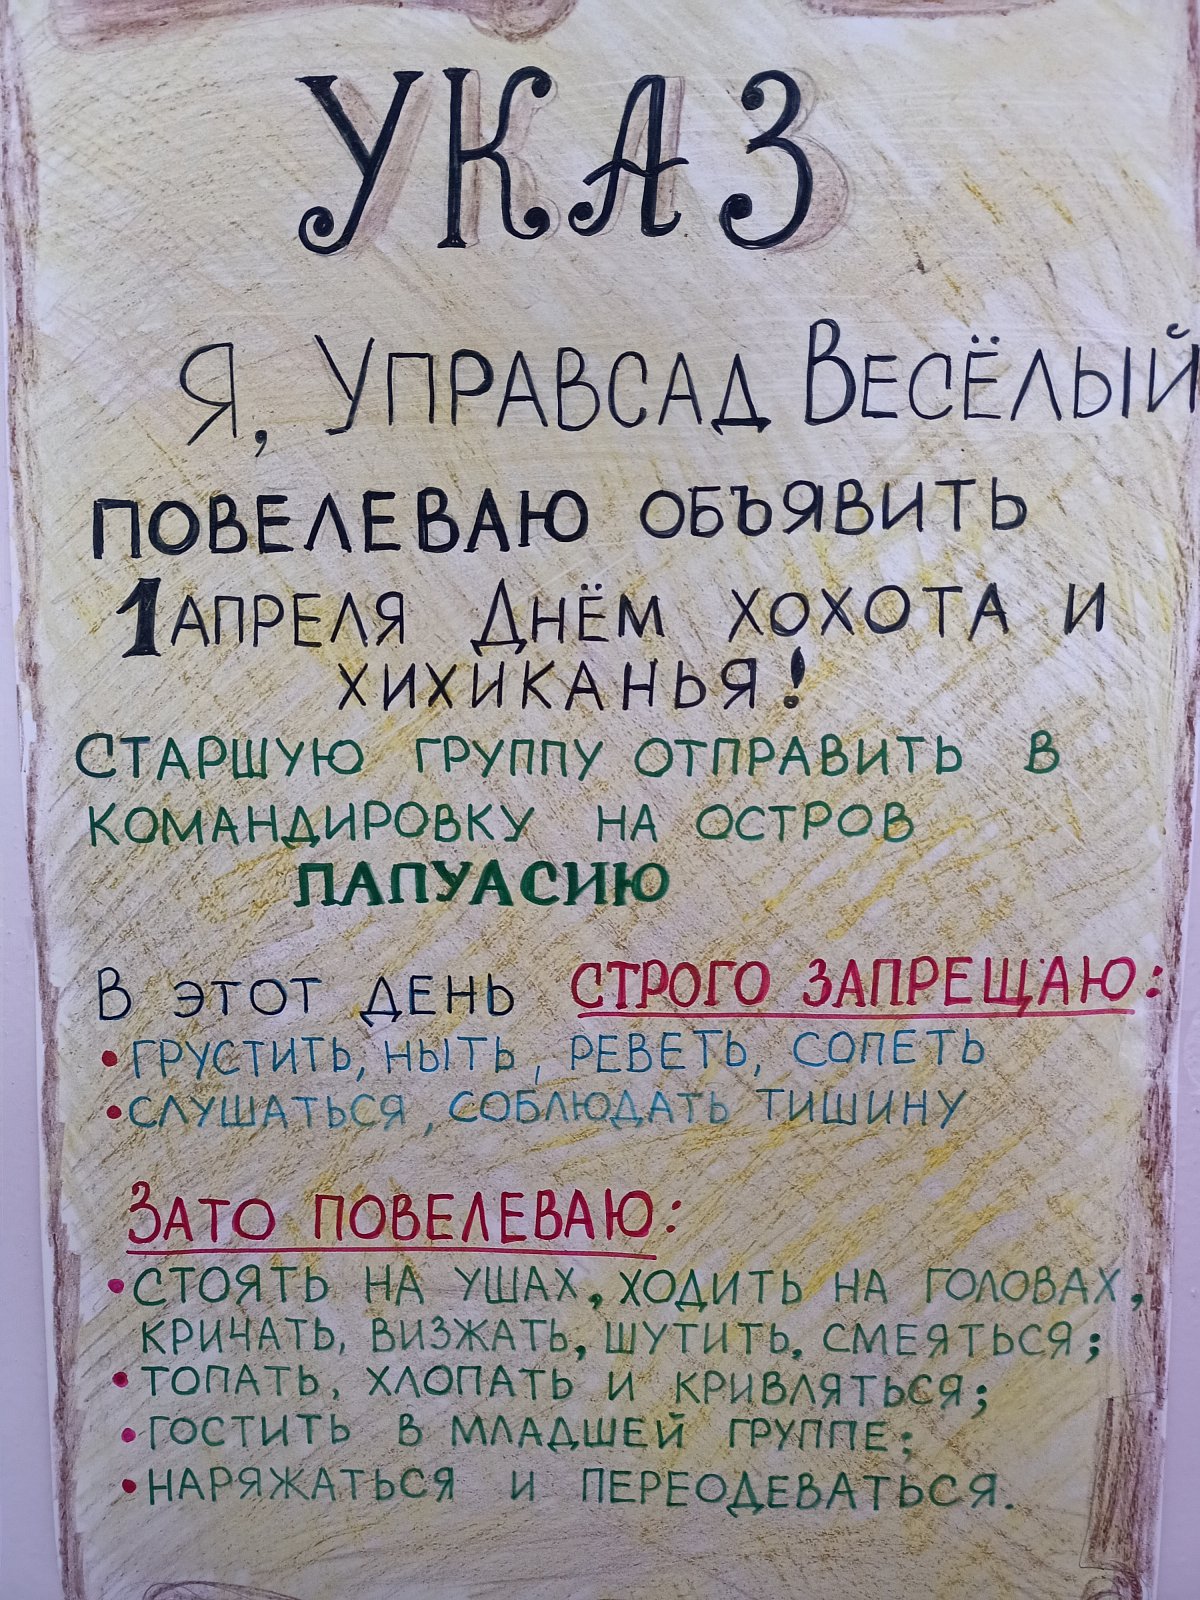 УКАЗ
Я, УПРАВСАД ВЕСЁЛЫЙ
ПОВЕЛЕВАЮ ОБЪЯВИТЬ
1 АПРЕЛЯ ДНЁМ ХОХОТА И
ХИХИКАНЬЯ!
СТАРШУЮ ГРУППУ ОТПРАВИТЬ В
КОМАНДИРОВКУ НА ОСТРОВ
ПАПУАСИЮ
В ЭТОТ ДЕНЬ СТРОГО ЗАПРЕЩАЮ:
• ГРУСТИТЬ, НЫТЬ, РЕВЕТЬ, СОПЕТЬ
• СЛУШАТЬСЯ, СОБЛЮДАТЬ ТИШИНУ
ЗАТО ПОВЕЛЕВАЮ:
• СТОЯТЬ НА УШАХ, ХОДИТЬ НА ГОЛОВАХ,
КРИЧАТЬ, ВИЗЖАТЬ, ШУТИТЬ, СМЕЯТЬСЯ;
• ТОПАТЬ, ХЛОПАТЬ И КРИВЛЯТЬСЯ;
• ГОСТИТЬ В МЛАДШЕЙ ГРУППЕ;
• НАРЯЖАТЬСЯ И ПЕРЕОДЕВАТЬСЯ.